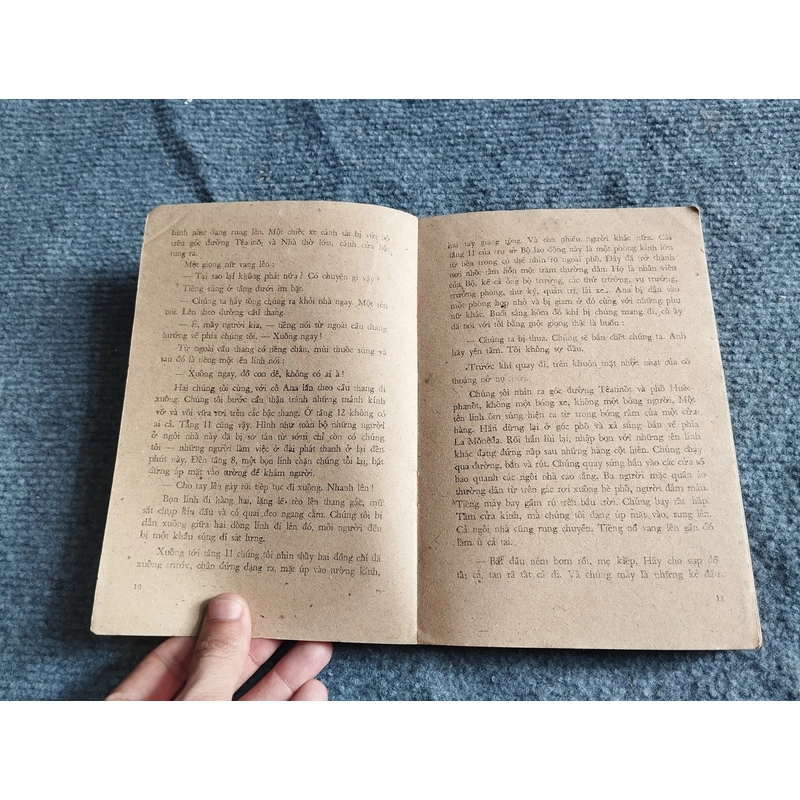 hình như đang rung lên. Một chiếc xe cảnh sát bị vứt bỏ
trên góc đường Têatinôt và Nhà thờ lớn, cánh cửa bật
tung ra.
Một giọng nữ vang lên:
— Tại sao lại không phát nữa? Có chuyện gì vậy?
Tiếng súng ở tầng dưới im bặt.
— Chúng ta hãy tống chúng ra khỏi nhà ngay. Một tên
nói. Lên theo đường cầu thang.
— Ê, mấy người kia, — tiếng nói từ ngoài cầu thang
hướng về phía chúng tôi. — Xuống ngay!
Từ ngoài cầu thang có tiếng chân, mùi thuốc súng và
sau đó là tiếng một tên lính nói:
— Xuống ngay, đồ con đĩ, không có ai à!
Hai chúng tôi cùng với cô Ana lần theo cầu thang đi
xuống. Chúng tôi bước cẩn thận tránh những mảnh kính
vỡ và vôi vữa rơi trên các bậc thang. Ở tầng 12 không có
ai cả. Tầng 11 cũng vậy. Hình như toàn bộ những người
ở ngôi nhà này đã bị sơ tán từ sớm chỉ còn có chúng
tôi — những người làm việc ở đài phát thanh ở lại đến
phút này. Đến tầng 8, một bọn lính chặn chúng tôi lại, bắt
đứng úp mặt vào tường để khám người.
— Cho tay lên gáy rồi tiếp tục đi xuống. Nhanh lên!
Bọn lính đi hàng hai, lặng lẽ trèo lên thang gác, mũ
sắt chụp kín đầu và có quai đeo ngang cằm. Chúng tôi bị
dẫn xuống giữa hai dòng lính đi lên đó, mỗi người đều
bị một khẩu súng dí sát lưng.
Xuống tới tầng 11 chúng tôi nhìn thấy hai đồng chí đã
xuống trước, chân đứng dạng ra, mặt úp vào tường kính,
10
hai tay giang rộng. Và còn nhiều người khác nữa. Cái
tầng 11 của trụ sở Bộ lao động này là một phòng kính lớn
từ bên trong có thể nhìn rõ ngoài phố. Đây đã trở thành
nơi nhốc hơn một trăm thường dân. Họ là nhân viên
của Bộ, kể cả ông bộ trưởng, các thứ trưởng, vụ trưởng,
trưởng phòng, thư ký, quản trị, lái xe... Ana bị dẫn vào
một phòng hẹp nhỏ và bị giam ở đó cùng với những phụ
nữ khác. Buổi sáng hôm đó khi bị chúng mang đi, cô ấy
đã nói với tôi bằng một giọng thật là buồn:
— Chúng ta bị thua. Chúng sẽ bắn chết chúng ta. Anh
hãy yên tâm. Tôi không sợ đâu.
Trước khi quay đi, trên khuôn mặt nhợt nhạt của cô
thoáng nở nụ cười.
Chúng tôi nhìn ra góc đường Têatinôt và phố Huêc-
phanôt, không một bóng xe, không một bóng người. Một
tên lính ôm súng hiện ra từ trong bóng râm của một cửa
hàng. Hắn dừng lại ở góc phố và xả súng bắn về phía
La Mônêđa. Rồi hắn lùi lại, nhập bọn với những tên lính
khác đang đứng nấp sau những hàng cột hiên. Chúng chạy
qua đường, bắn và rút. Chúng quay súng bắn vào các cửa sổ
bao quanh các ngôi nhà cao tầng. Ba người mặc quần áo
thường dân từ trên gác rơi xuống hè phố, người đẫm máu.
Tiếng máy bay gầm rú trên bầu trời. Chúng bay rất thấp.
Tấm cửa kính, mà chúng tôi đang úp mặt vào, rung lên.
Cả ngôi nhà cũng rung chuyển. Tiếng nổ vang lên gần đó
làm ù cả tai.
— Bắt đầu ném bom rồi, mẹ kiếp. Hãy cho sụp đổ
tất cả, tan rã tất cả đi. Và chúng mày là những kẻ đầu
11